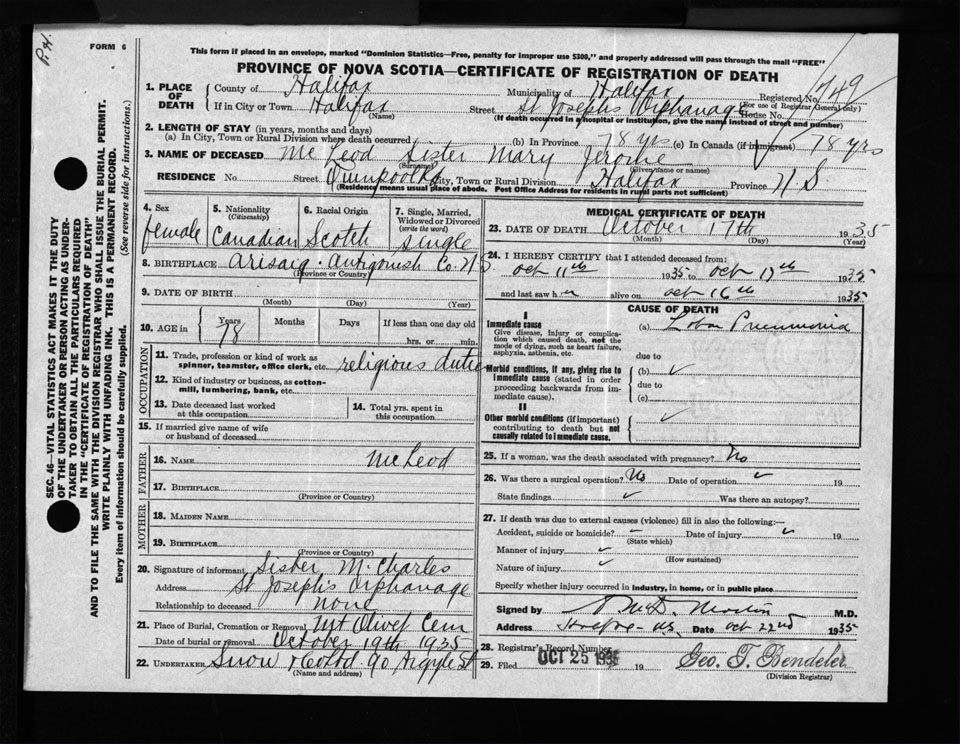 P.H.
FORM 6
This form if placed in an envelope, marked "Dominion Statistics—Free, penalty for improper use $300," and properly addressed will pass through the mail "FREE"
PROVINCE OF NOVA SCOTIA—CERTIFICATE OF REGISTRATION OF DEATH
SEC. 46—VITAL STATISTICS ACT MAKES IT THE DUTY
OF THE UNDERTAKER OR PERSON ACTING AS UNDER-
TAKER TO OBTAIN ALL THE PARTICULARS REQUIRED
IN THE "CERTIFICATE OF REGISTRATION OF DEATH"
AND TO FILE THE SAME WITH THE DIVISION REGISTRAR WHO SHALL ISSUE THE BURIAL PERMIT.
WRITE PLAINLY WITH UNFADING INK. THIS IS A PERMANENT RECORD.
Every item of information should be carefully supplied. (See reverse side for instructions.)
1. PLACE OF DEATH County of Halifax Municipality of Halifax Registered No. 749
(For use of Registrar General only)
If in City or Town Halifax Street St Joseph's Orphanage House No.
(Name) (If death occurred in a hospital or institution, give the name instead of street and number)
2. LENGTH OF STAY (in years, months and days)
(a) In City, Town or Rural Division where death occurred (b) In Province 78 yrs (c) In Canada (if immigrant) 78 yrs
3. NAME OF DECEASED McLeod Sister Mary Jerome
(Surname) (Given name or names)
RESIDENCE No. Street Quinpool Rd City, Town or Rural Division Halifax Province N S
(Residence means usual place of abode. Post Office Address for residents in rural parts not sufficient)
4. Sex female
5. Nationality (Citizenship) Canadian
6. Racial Origin Scotch
7. Single, Married, Widowed or Divorced (write the word) single
8. BIRTHPLACE Arisaig. Antigonish Co. N S
(Province or Country)
9. DATE OF BIRTH
(Month) (Day) (Year)
10. AGE in Years 78 Months Days If less than one day old
hrs. or min.
OCCUPATION
11. Trade, profession or kind of work as spinner, teamster, office clerk, etc. religious duties
12. Kind of industry or business, as cotton-mill, lumbering, bank, etc.
13. Date deceased last worked at this occupation
14. Total yrs. spent in this occupation
15. If married give name of wife or husband of deceased
FATHER
16. NAME McLeod
17. BIRTHPLACE
(Province or Country)
MOTHER
18. MAIDEN NAME
19. BIRTHPLACE
(Province or Country)
20. Signature of informant Sister M. Charles
Address St Joseph's Orphanage
Relationship to deceased none
21. Place of Burial, Cremation or Removal Mt Olivet Cem
Date of burial or removal October 19th 1935
22. UNDERTAKER Snow & Co Ltd. 90 Argyle St
(Name and address)
MEDICAL CERTIFICATE OF DEATH
23. DATE OF DEATH October 17th 1935
(Month) (Day) (Year)
24. I HEREBY CERTIFY that I attended deceased from:
Oct 11th 1935 to Oct 17th 1935
and last saw her alive on Oct 16th 1935
CAUSE OF DEATH
I
Immediate cause
Give disease, injury or complication which caused death, not the mode of dying, such as heart failure, asphyxia, asthenia, etc.
(a) Lobar Pneumonia
due to
Morbid conditions, if any, giving rise to immediate cause (stated in order proceeding backwards from immediate cause).
(b) ✓
due to
(c)
II
Other morbid conditions (if important) contributing to death but not causally related to immediate cause. ✓
25. If a woman, was the death associated with pregnancy? No
26. Was there a surgical operation? No Date of operation ✓ 19
State findings ✓ Was there an autopsy?
27. If death was due to external causes (violence) fill in also the following:—
Accident, suicide or homicide? ✓ Date of injury ✓ 19
(State which)
Manner of injury ✓
(How sustained)
Nature of injury ✓
Specify whether injury occurred in industry, in home, or in public place
Signed by M.D.
Address Date Oct 22nd 1935
28. Registrar's Record Number
29. Filed OCT 25 1935 19 Geo. T. Bendeler
(Division Registrar)